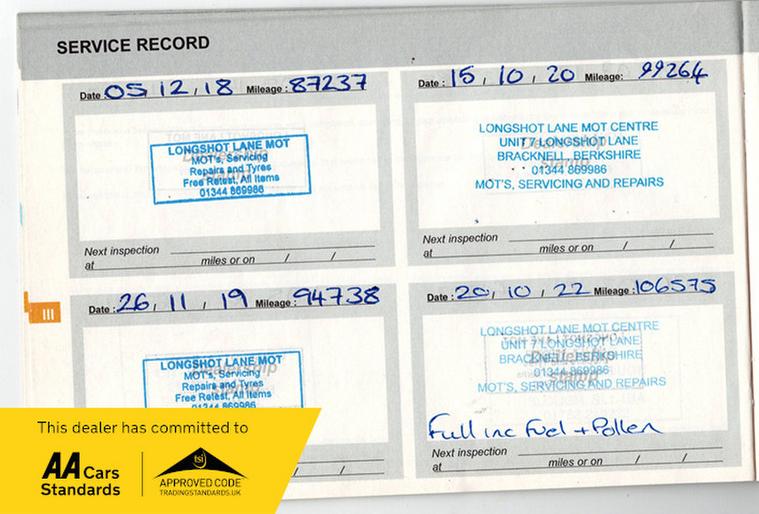 SERVICE RECORD
Date 05, 12, 18 Mileage : 87237
LONGSHOT LANE MOT
MOT's, Servicing
Repairs and Tyres
Free Retest, All Items
01344 869986
Next inspection
at miles or on / /
Date : 26, 11, 19 Mileage : 94738
LONGSHOT LANE MOT
MOT's, Servicing
Repairs and Tyres
Free Retest, All Items
01344 869986
Date : 15, 10, 20 Mileage: 99264
LONGSHOT LANE MOT CENTRE
UNIT 7 LONGSHOT LANE
BRACKNELL, BERKSHIRE
01344 869986
MOT'S, SERVICING AND REPAIRS
Next inspection
at miles or on / /
Date : 20, 10, 22 Mileage :106575
LONGSHOT LANE MOT CENTRE
UNIT 7 LONGSHOT LANE
BRACKNELL, BERKSHIRE
01344 869986
MOT'S, SERVICING AND REPAIRS
Dealership
stamp
Full inc Fuel + Pollen
Next inspection
at miles or on / /
III
This dealer has committed to
AA Cars
Standards
tsi
APPROVED CODE
TRADINGSTANDARDS.UK